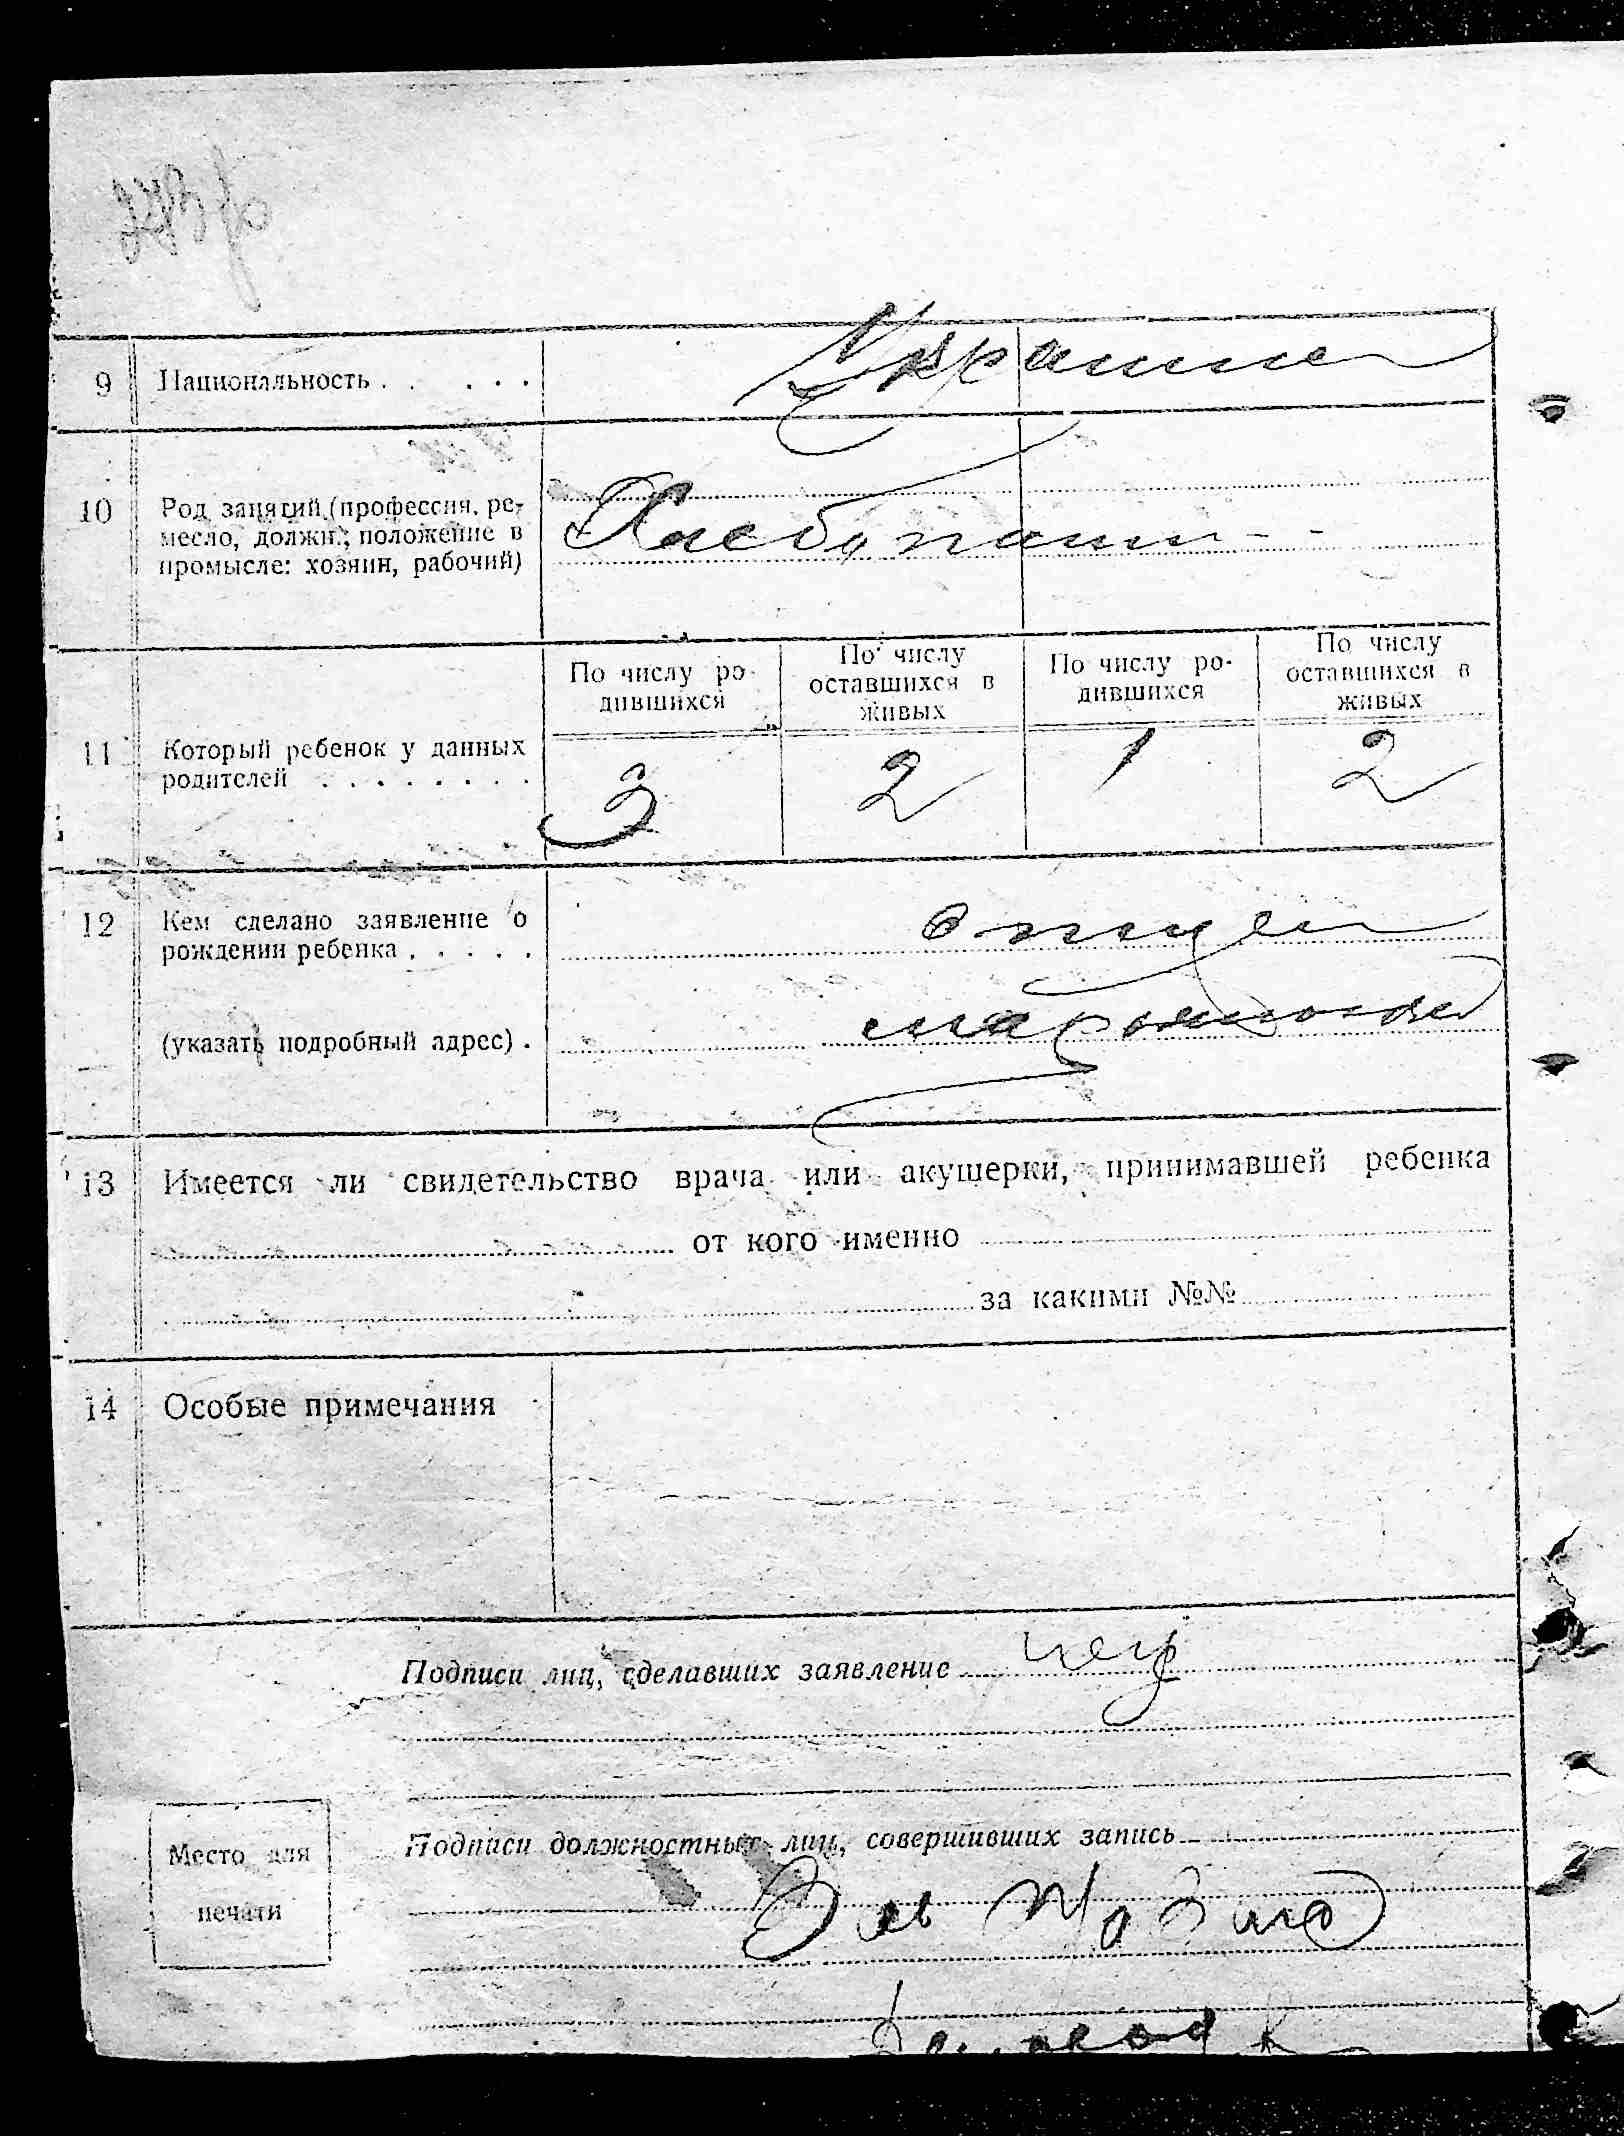 9 Национальность . . . . . . Украинец
10 Род занятий (профессия, ре-
месло, должн.; положение в
промысле: хозяин, рабочий)
Хлебопаш - -
По числу ро-
дившихся
По числу
оставшихся в
живых
По числу ро-
дившихся
По числу
оставшихся в
живых
11 Который ребенок у данных
родителей . . . . . . . .
3 2 1 2
12 Кем сделано заявление о
рождении ребенка . . . . .
отцем
(указать подробный адрес) .
13 Имеется ли свидетельство врача или акушерки, принимавшей ребенка
от кого именно
за какими №№
14 Особые примечания
Подписи лиц, сделавших заявление
Подписи должностных лиц, совершивших запись
Место для
печати